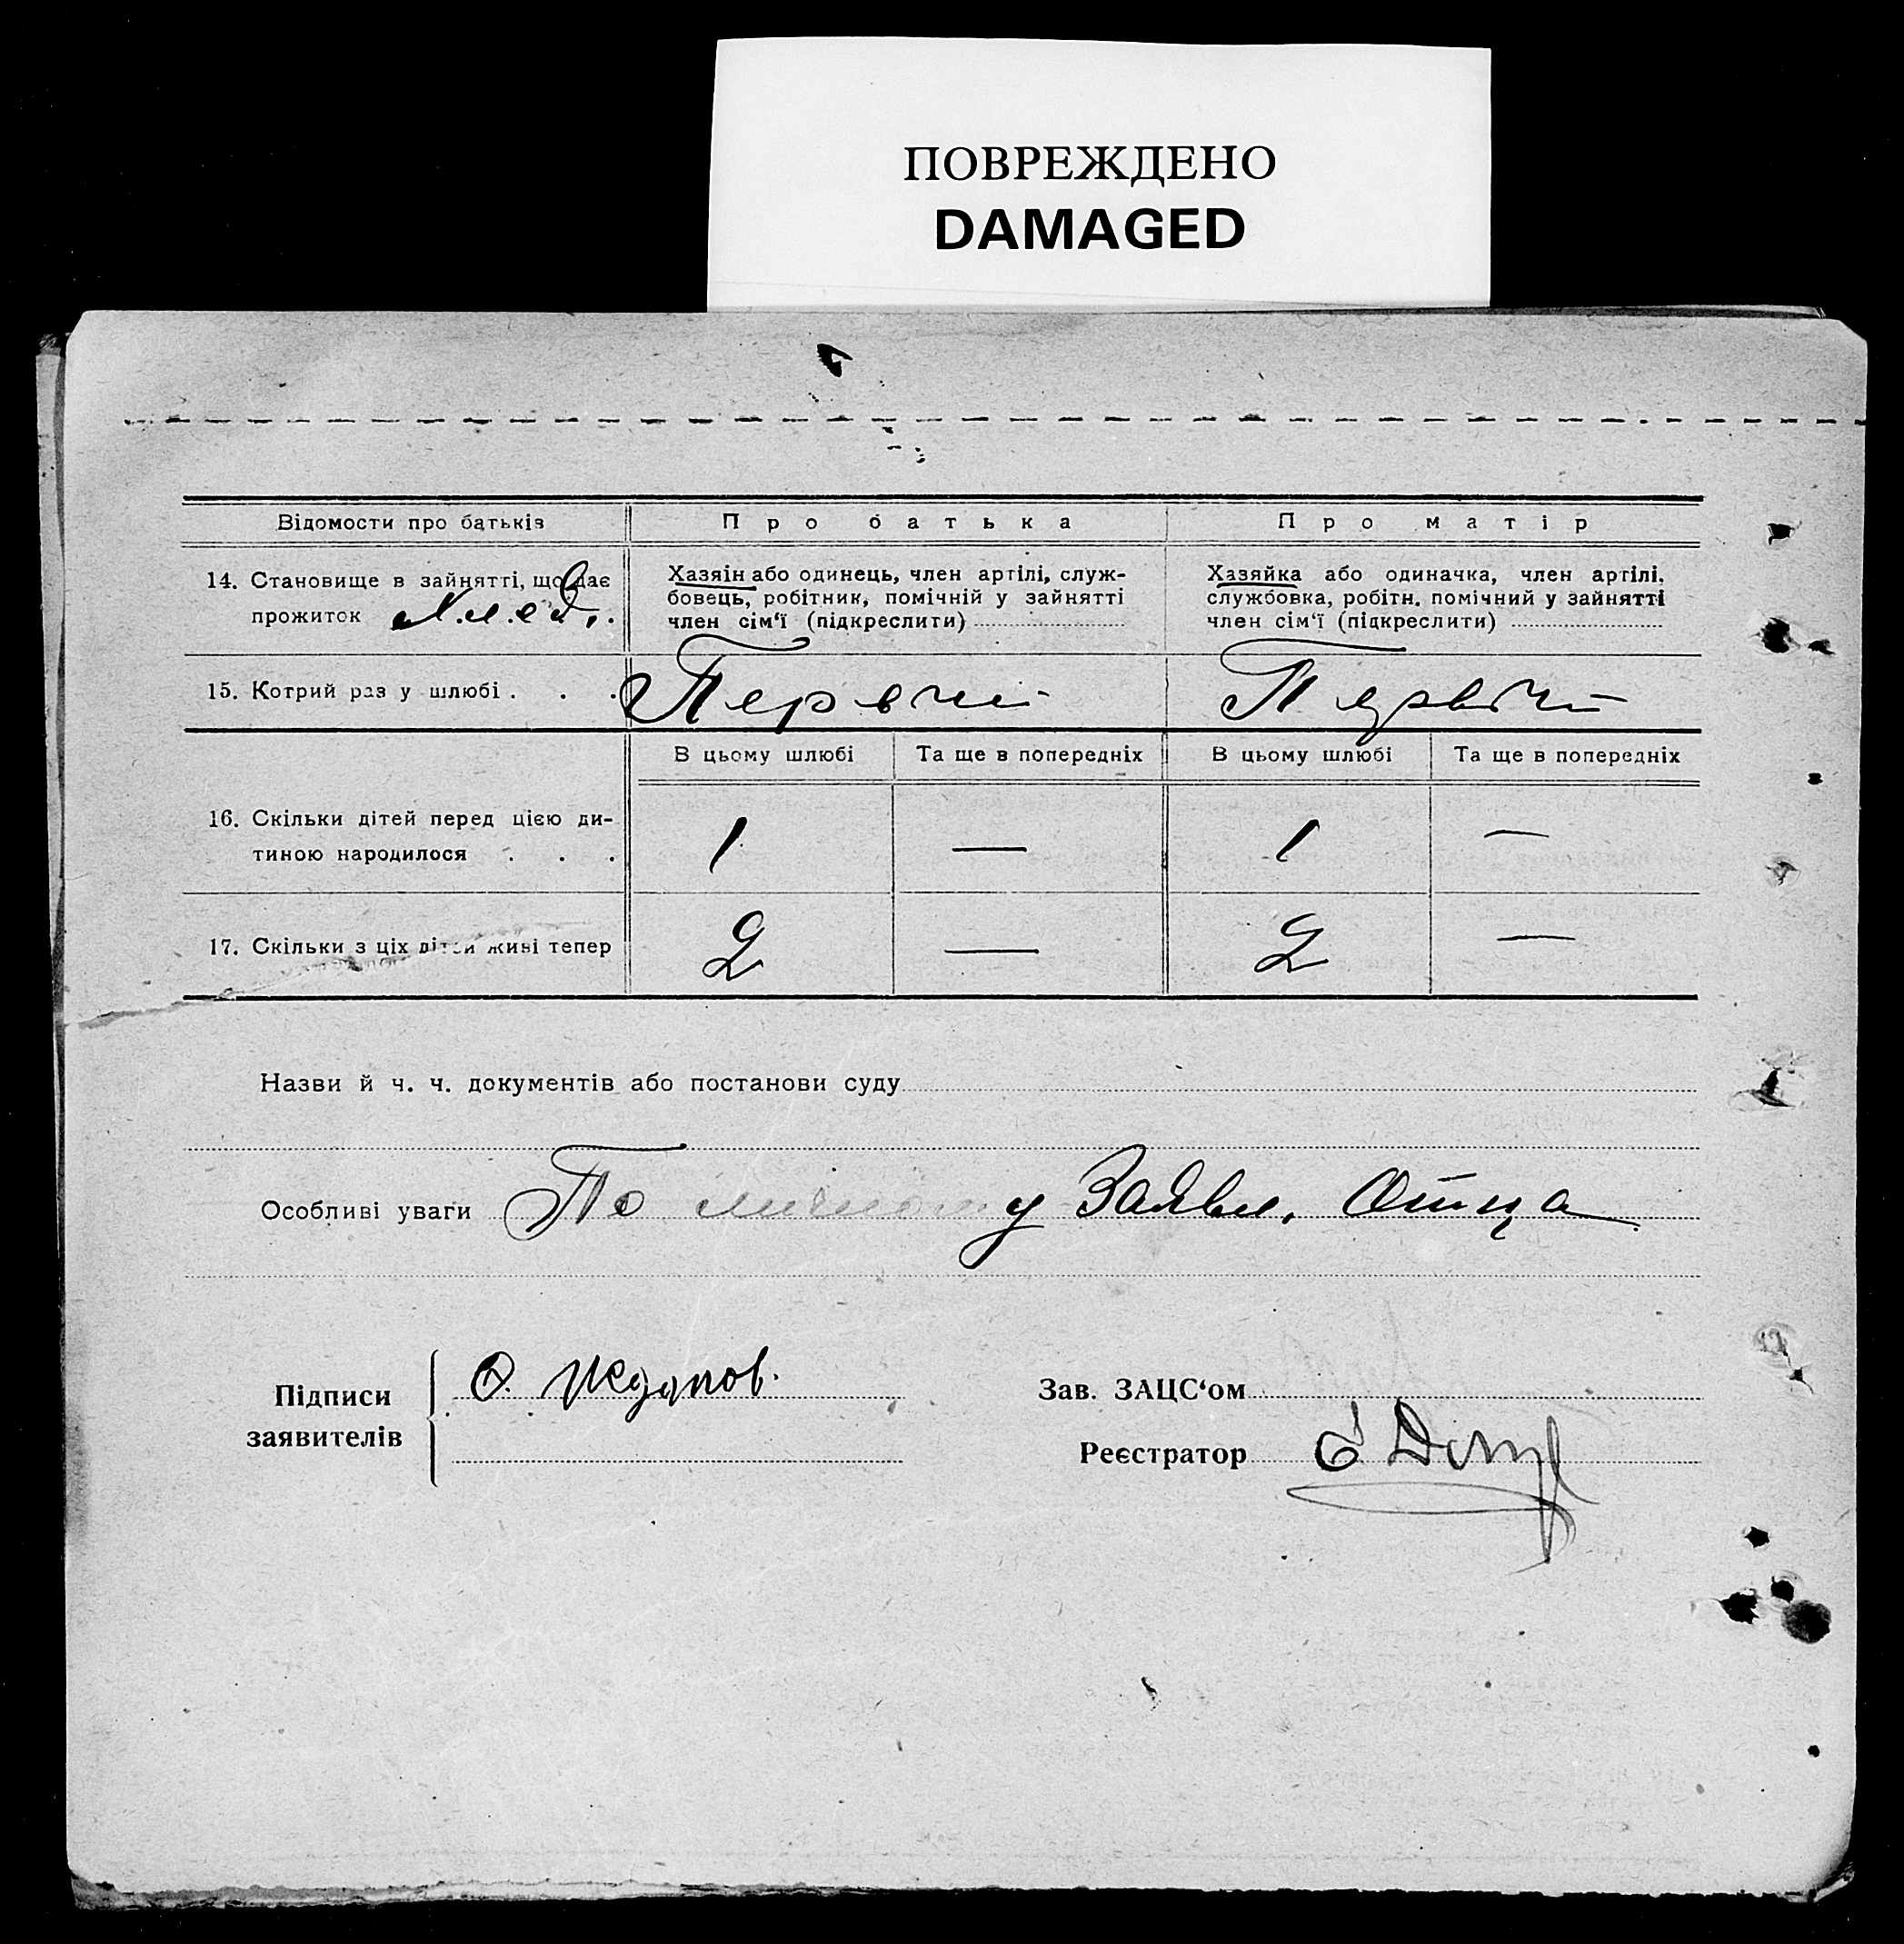 ПОВРЕЖДЕНО
DAMAGED
Відомости про батьків
Про батька
Про матір
14. Становище в зайнятті, що дає
прожиток
Хазяін або одинець, член артілі, служ-
бовець, робітник, помічній у зайнятті
член сім‘ї (підкреслити)
Хазяйка або одиначка, член артілі,
службовка, робітн. помічний у зайнятті
член сім‘ї (підкреслити)
15. Котрий раз у шлюбі . . .
В цьому шлюбі
Та ще в попередніх
В цьому шлюбі
Та ще в попередніх
16. Скільки дітей перед цією ди-
тиною народилося . . .
1 — 1 —
17. Скільки з ціх дітей живі тепер
2 — 2 —
Назви й ч. ч. документів або постанови суду
Особливі уваги По личному Заявл. Отца
Підписи
заявителів
Зав. ЗАЦС‘ом
Реєстратор